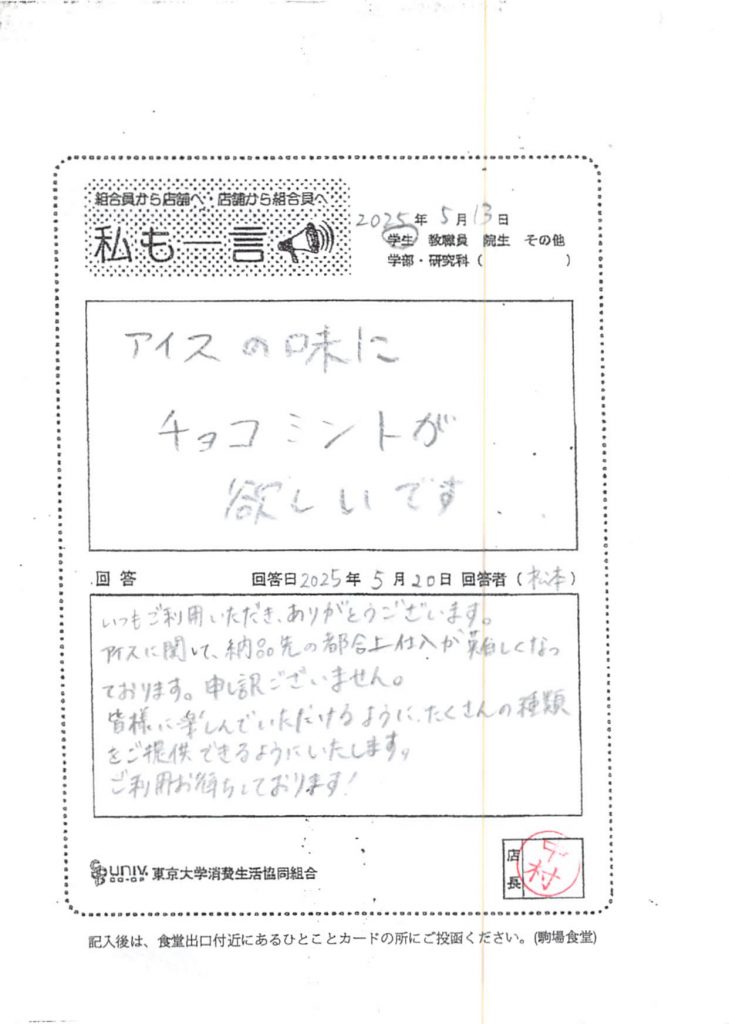 組合員から店舗へ・店舗から組合員へ
私も一言
2025年 5月 13日
学生 教職員 院生 その他
学部・研究科( )
アイスの味に
チョコミントが
欲しいです
回答 回答日2025年 5月20日 回答者(松本)
いつもご利用いただき、ありがとうございます。
アイスに関して、納品先の都合上仕入が難しくなっ
ております。申し訳ございません。
皆様に楽しんでいただけるように、たくさんの種類
をご提供できるようにいたします。
ご利用お待ちしております!
UNIV. CO-OP 東京大学消費生活協同組合
店長
村
記入後は、食堂出口付近にあるひとことカードの所にご投函ください。(駒場食堂)